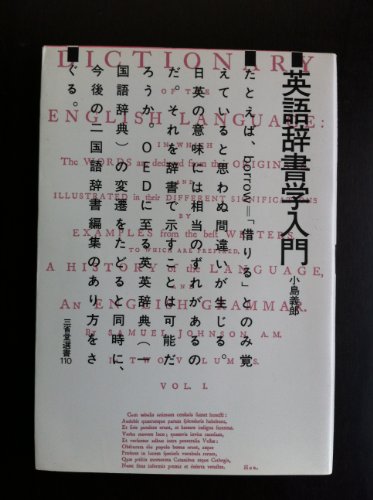 英語辞書学入門
小島義郎
たとえば、borrow=「借りる」とのみ覚
えていると思わぬ間違いが生じる。
日英の意味には相当のずれがあるの
だ。それを辞書で示すことは可能だ
ろうか。OEDに至る英英辞典(一
国語辞典)の変遷をたどると同時に、
今後の二国語辞書編集のあり方をさ
ぐる。
三省堂選書110
DICTIONARY
OF THE
ENGLISH LANGUAGE:
IN WHICH
The WORDS are deduced from their ORIGINALS,
AND
ILLUSTRATED in their DIFFERENT SIGNIFICATIONS
BY
EXAMPLES from the best WRITERS.
TO WHICH ARE PREFIXED,
A HISTORY of the LANGUAGE,
AND
AN ENGLISH GRAMMAR.
BY SAMUEL JOHNSON, A.M.
IN TWO VOLUMES.
VOL. I.
Cum tabulis animum censoris sumet honesti:
Audebit quaecunque parum splendoris habebunt,
Et sine pondere erunt, et honore indigna ferentur.
Verba movere loco; quamvis invita recedant,
Et versentur adhuc intra penetralia Vestae:
Obscurata diu populo bonus eruet, atque
Proferet in lucem speciosa vocabula rerum,
Quae priscis memorata Catonibus atque Cethegis,
Nunc situs informis premit et deserta vetustas. Hor.